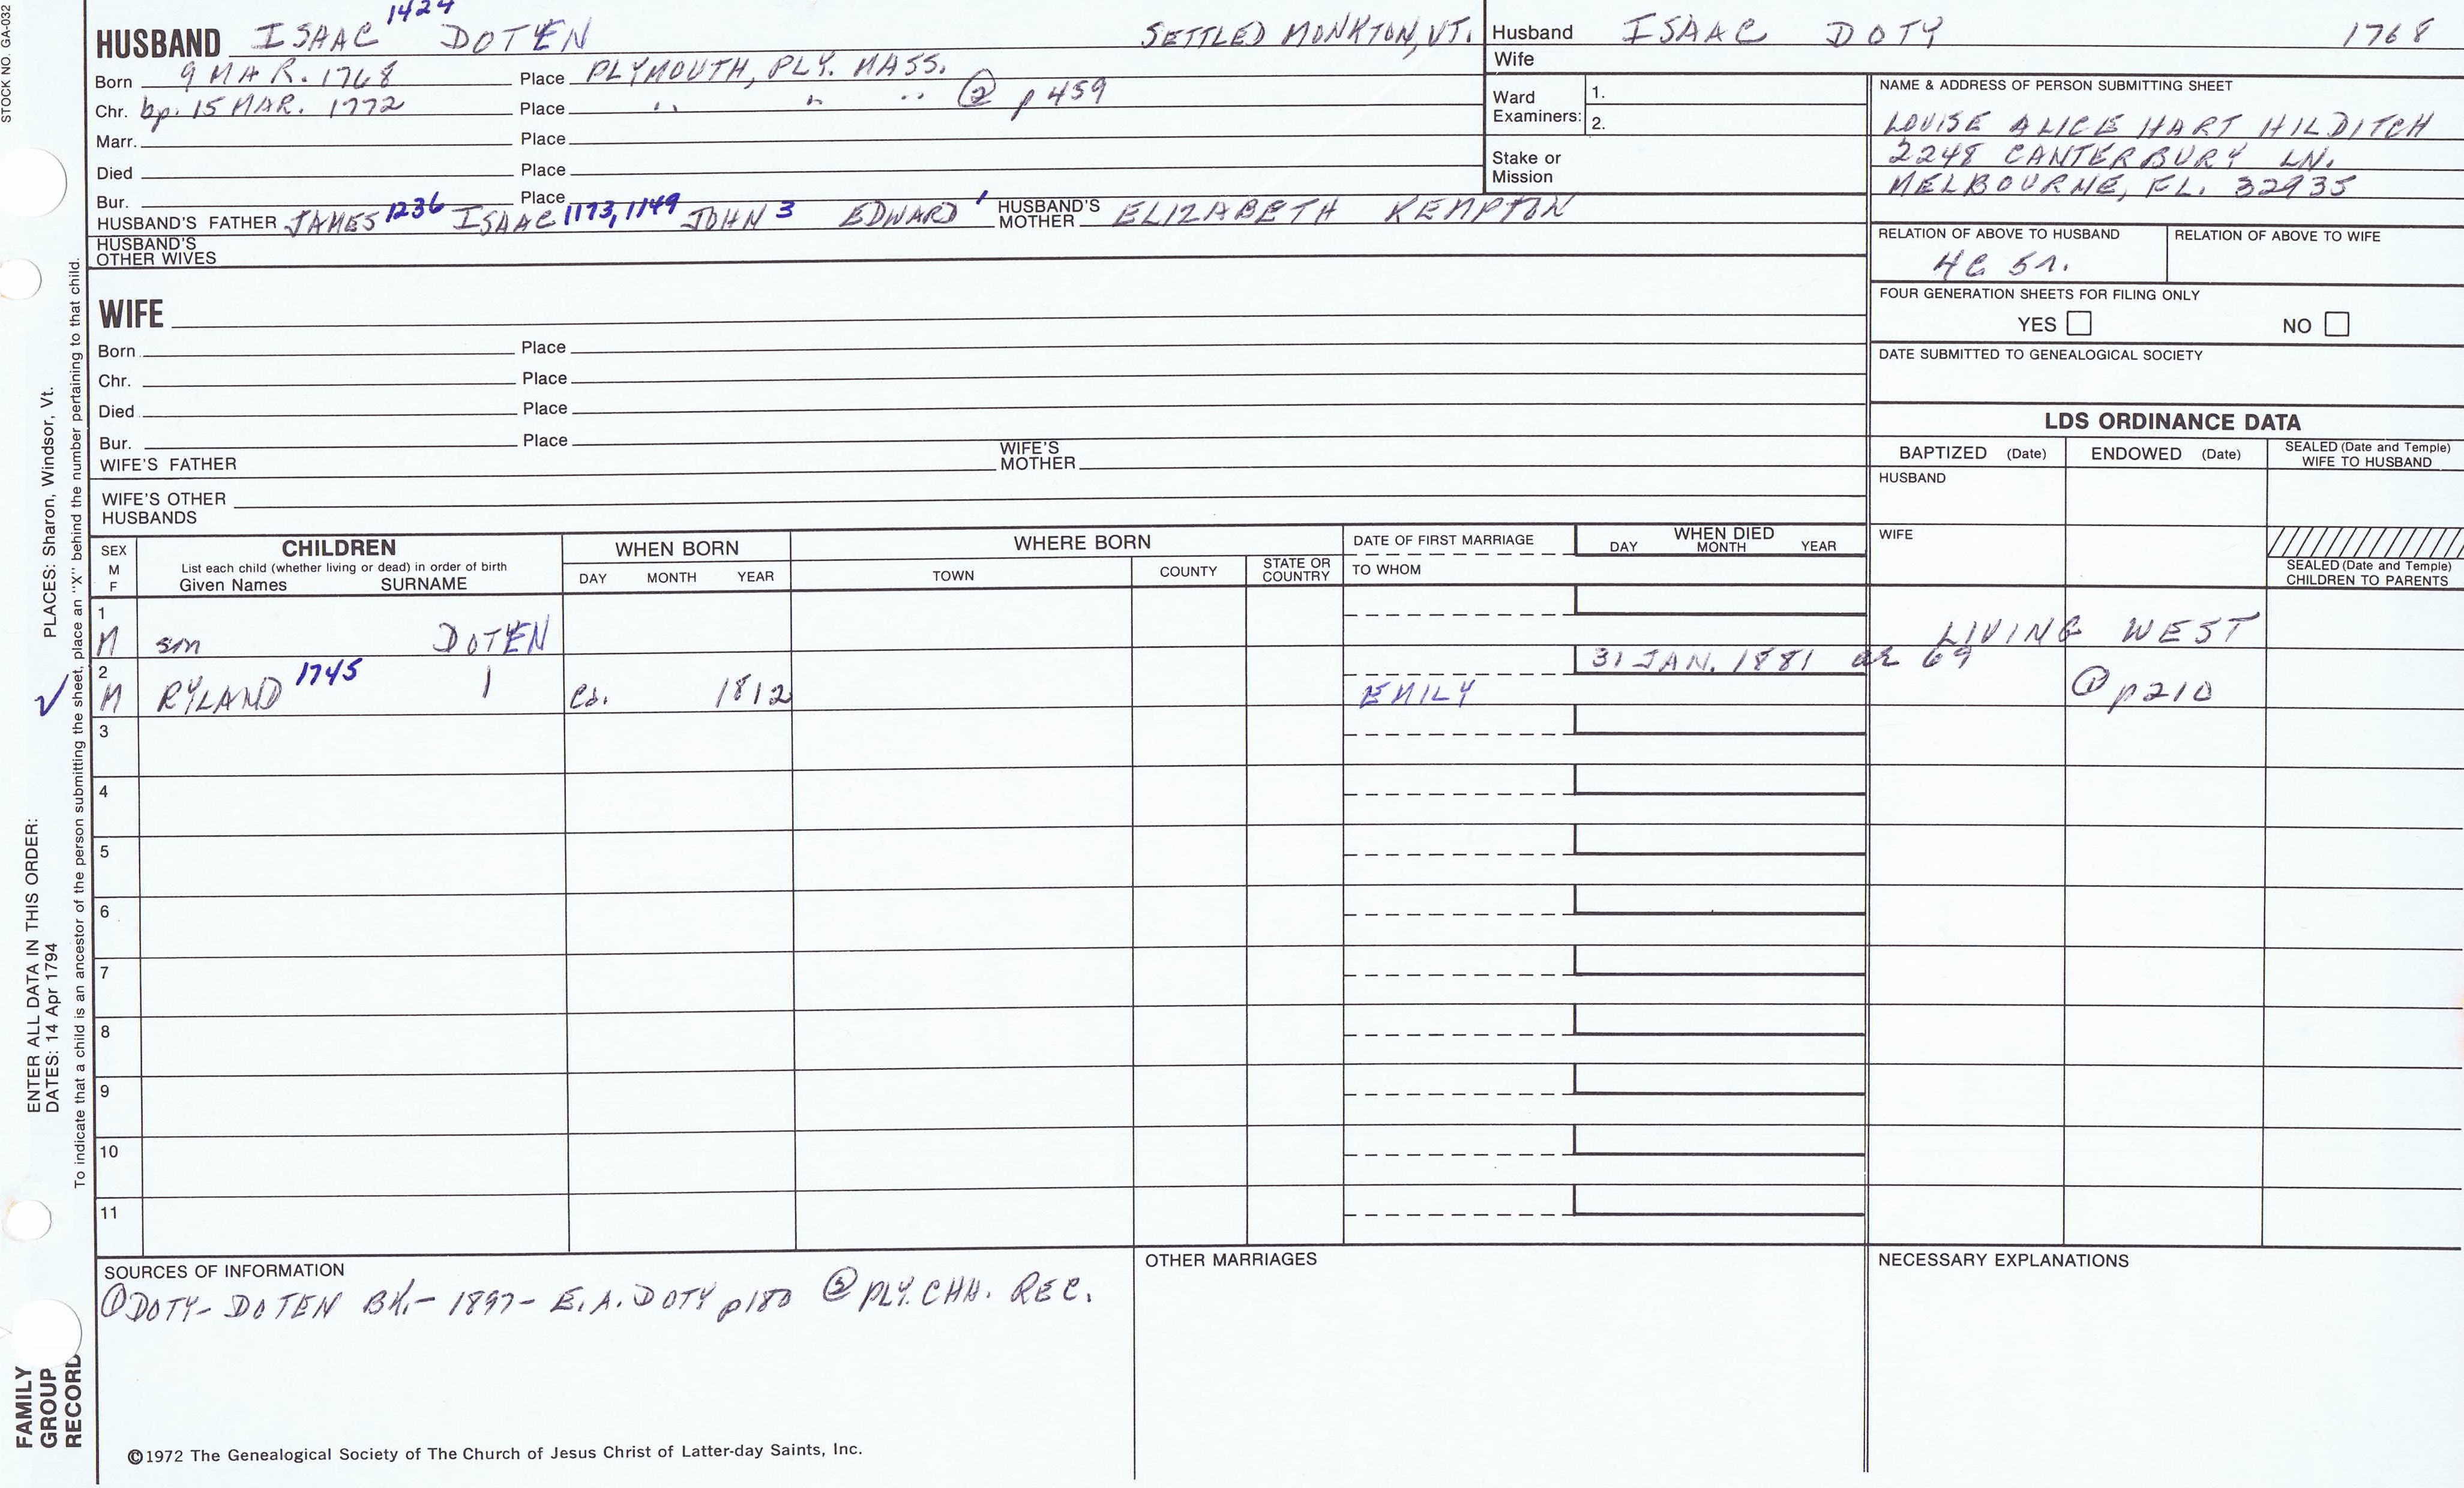 STOCK NO. GA-032
HUSBAND ISAAC 1424 DOTEN SETTLED MONKTON, VT.
Born 9 MAR. 1768 Place PLYMOUTH, PLY. MASS.
Chr. bp. 15 MAR. 1772 Place " " " ② p 459
Marr. Place
Died Place
Bur. Place
HUSBAND'S FATHER JAMES 1236 ISAAC 1173, 1149 JOHN 3 EDWARD 1 HUSBAND'S MOTHER ELIZABETH KEMPTON
HUSBAND'S OTHER WIVES
Husband ISAAC DOTY 1768
Wife
Ward Examiners: 1.
2.
Stake or Mission
NAME & ADDRESS OF PERSON SUBMITTING SHEET
LOUISE ALICE HART HILDITCH
2248 CANTERBURY LN.
MELBOURNE, FL. 32935
RELATION OF ABOVE TO HUSBAND RELATION OF ABOVE TO WIFE
4C 5r.
FOUR GENERATION SHEETS FOR FILING ONLY
YES NO
DATE SUBMITTED TO GENEALOGICAL SOCIETY
WIFE
Born Place
Chr. Place
Died Place
Bur. Place
WIFE'S FATHER WIFE'S MOTHER
WIFE'S OTHER HUSBANDS
LDS ORDINANCE DATA
BAPTIZED (Date) ENDOWED (Date) SEALED (Date and Temple) WIFE TO HUSBAND
HUSBAND
WIFE
SEALED (Date and Temple) CHILDREN TO PARENTS
SEX M F
CHILDREN
List each child (whether living or dead) in order of birth
Given Names SURNAME
WHEN BORN
DAY MONTH YEAR
WHERE BORN
TOWN COUNTY STATE OR COUNTRY
DATE OF FIRST MARRIAGE
TO WHOM
WHEN DIED
DAY MONTH YEAR
1
M son DOTEN LIVING WEST
2 31 JAN. 1881 ae 69
M RYLAND 1745 ca. 1812 EMILY ① p 210
3
4
5
6
7
8
9
10
11
SOURCES OF INFORMATION
① DOTY-DOTEN BK.- 1897- E.A. DOTY p180 ② PLY. CHH. REC.
OTHER MARRIAGES
NECESSARY EXPLANATIONS
©1972 The Genealogical Society of The Church of Jesus Christ of Latter-day Saints, Inc.
ENTER ALL DATA IN THIS ORDER:
DATES: 14 Apr 1794 PLACES: Sharon, Windsor, Vt.
To indicate that a child is an ancestor of the person submitting the sheet, place an "X" behind the number pertaining to that child.
FAMILY
GROUP
RECORD